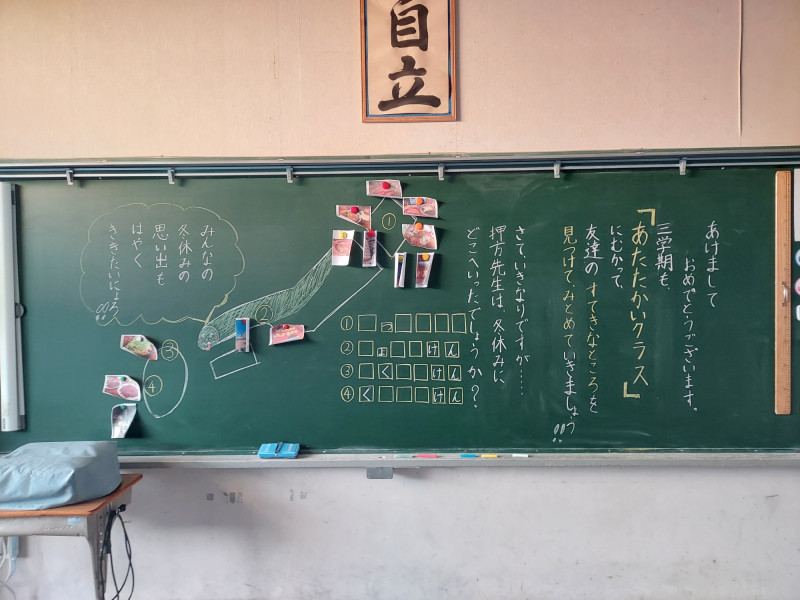 自立
あけまして
おめでとうございます。
三学期も、
『あたたかいクラス』
にむかって、
友達の すてきなところを
見つけて、みとめていきましょう!!
さて、いきなりですが……
押方先生は、冬休みに
どこへいったでしょうか?
①□っ□□□□
②□ょ□□けん
③□く□□けん
④く□□□けん
①
②
③
④
みんなの
冬休みの
思い出も
はやく
ききたいにょろ!!